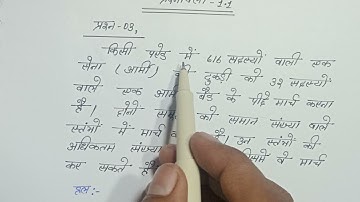 प्रश्नावली - 1.1
प्रश्न-03,
किसी परेड में 616 सदस्यों वाली एक
सेना (आर्मी) की टुकड़ी को 32 सदस्यों
वाले एक आर्मी बैंड के पीछे मार्च करना
है। दोनों समान संख्या वाले
स्तंभों में मार्च उन स्तंभों की
अधिकतम संख्या जिसमें वे मार्च
कर सकते है
हल :-